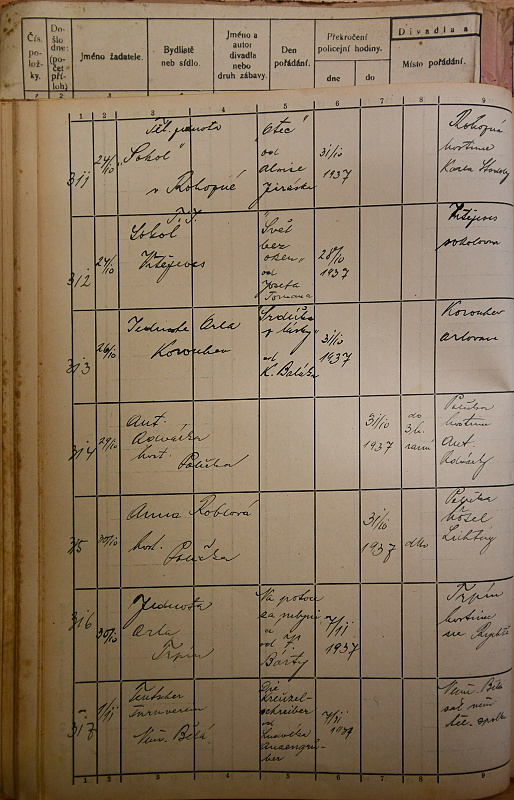 Čís. polož- ky.
Do- šlo dne: (po- čet pří- loh)
Jméno žadatele.
Bydliště neb sídlo.
Jméno a autor divadla nebo druh zábavy.
Den pořádání.
Překročení policejní hodiny.
dne
do
Divadla a
Místo pořádání.
1 2 3 4 5 6 7 8 9
311
24/10
Těl. jednota
"Sokol"
v Rohozné
"Otec"
od
Aloise
Jiráska
31/10
1937
Rohozná
hostinec
Karla
312
24/10
T. J.
Sokol
Kněževes
"Svět
bez
oken"
od
Josefa
Tomana
28/10
1937
sokolovna
313
26/10
Jednota Orla
Korouhev
Srdíčko
z lásky"
od
K. Baláka
31/10
1937
Korouhev
orlovna
314
29/10
Ant.
host.
Polička
31/10
1937
do
3h.
ranní
Polička
hostinec
Ant.
315
30/10
Anna
host.
Polička
31/10
1937
dtto
Polička
316
30/10
Jednota
Orla
Trpín
Na potoce
za
a
od
Bárty
7/11
1937
Trpín
hostinec
317
1/11
Teutscher
Turnverein
Něm. Bělá
Die
Kreuzel-
schreiber
od
Ludvíka
Anzengru-
ber
7/11
1937
Něm. Bělá
sál něm
těl. spolku
1 2 3 4 5 6 7 8 9